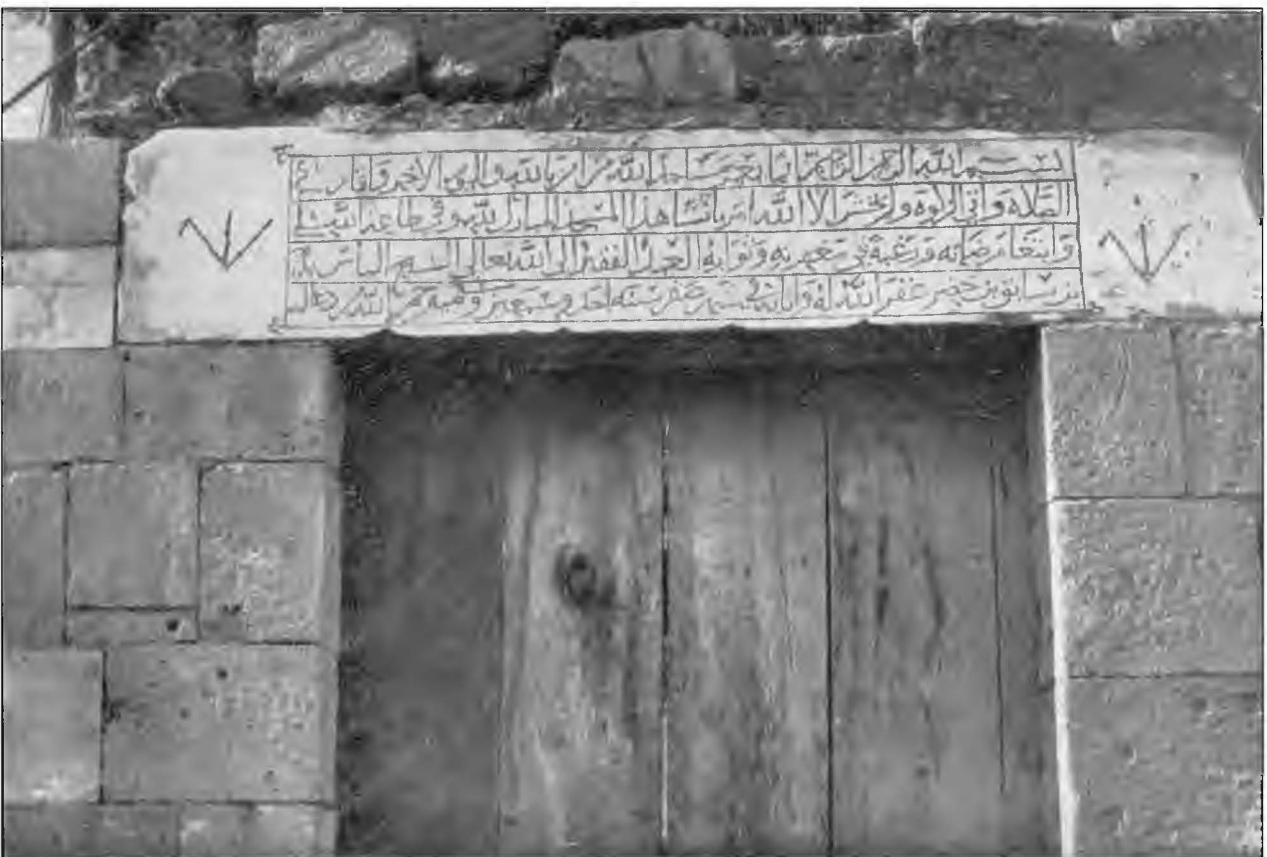 بسم الله الرحمن الرحيم إنما يعمر مساجد الله من امن بالله واليوم الاخر واقام
الصلاة واتى الزكوة ولم يخش الا الله امر بانشا هذا المسجد المبارك لله وفي طاعة الله
وابتغا مرضاته ورغبة في مغفرته وثوابه العبد الفقير إلى الله تعالى
بن سابق بن خضر غفر الله له واثابه في شهر صفر سنة احد وسبعين